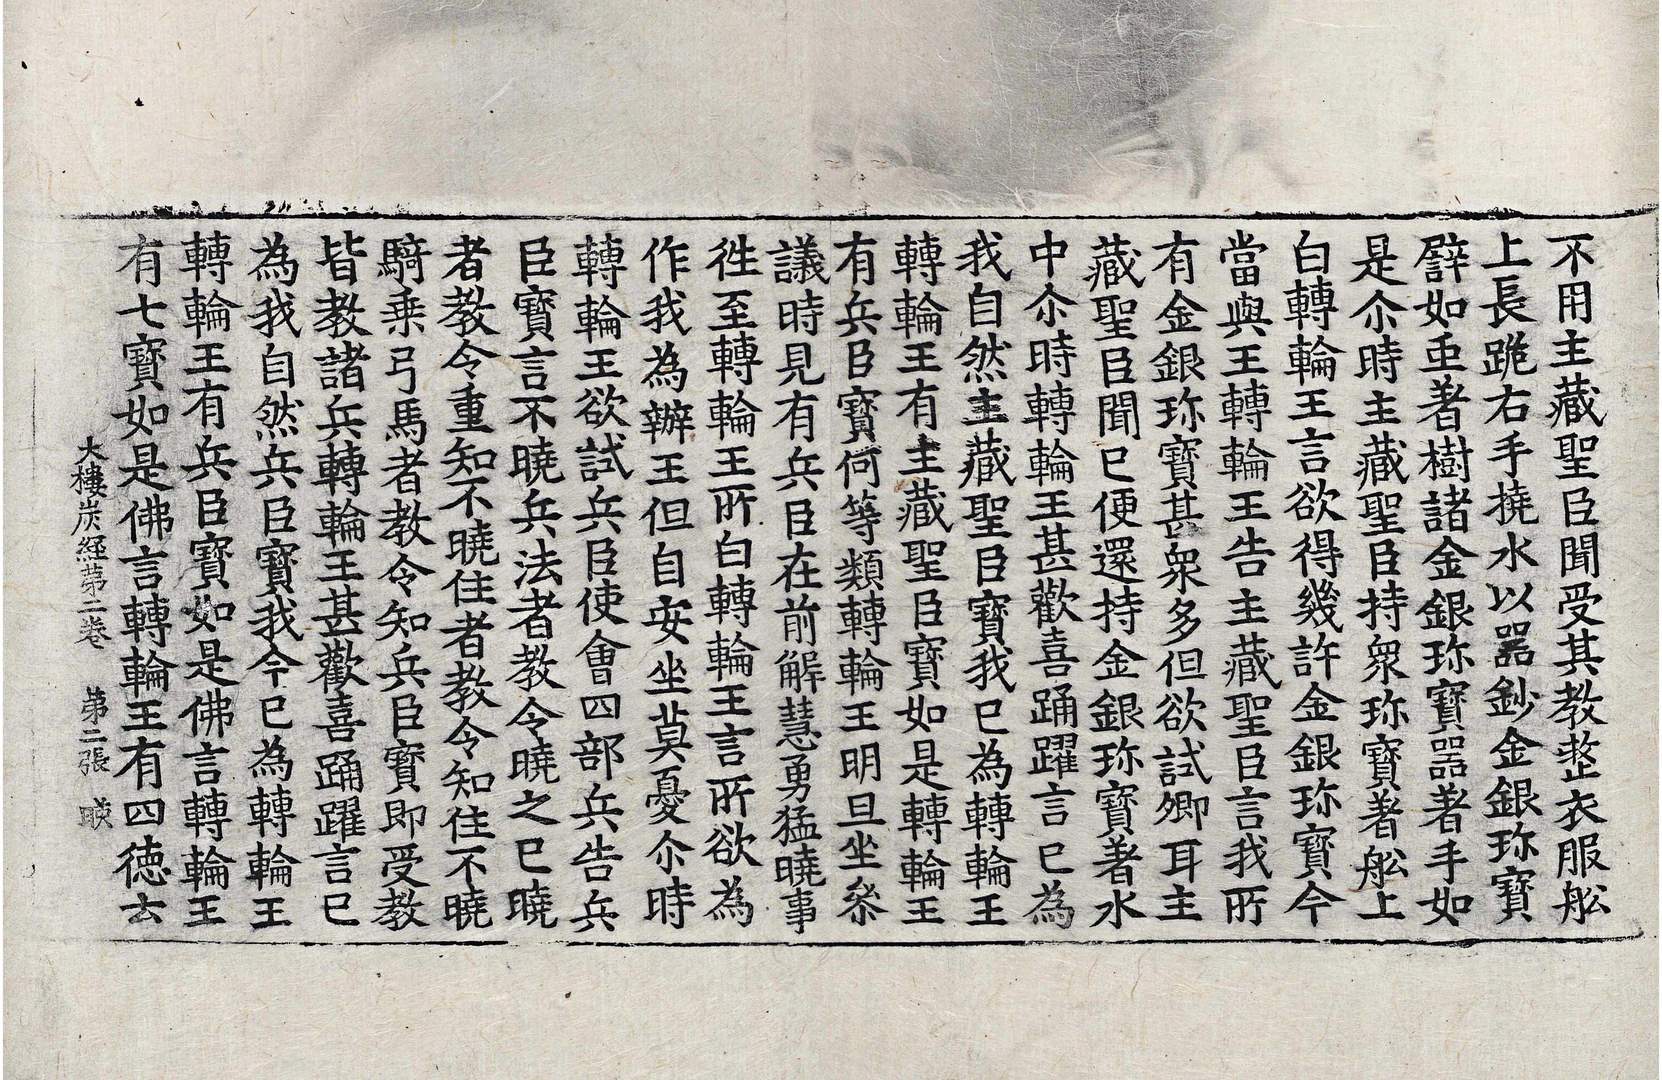 不用主藏聖臣聞受其教整衣服舩
上長跪右手撓水以器鈔金銀珎寶
譬如䖝著樹諸金銀珎寶器著手如
是尒時主藏聖臣持衆珎寶著舩上
白轉輪王言欲得幾許金銀珎寶今
當與王轉輪王告主藏聖臣言我所
有金銀珎寶甚衆多但欲試卿耳主
藏聖臣聞已便還持金銀珎寶著水
中尒時轉輪王甚歡喜踊躍言已為
我自然主藏聖臣寶我已為轉輪王
轉輪王有主藏聖臣寶如是轉輪王
有兵臣寶何等類轉輪王明旦坐叅
議時見有兵臣在前解慧勇猛曉事
徃至轉輪王所白轉輪王言所欲為
作我為辦王但自安坐莫憂尒時
轉輪王欲試兵臣使會四部兵告兵
臣寶言不曉兵法者教令曉之已曉
者教令重知不曉住者教令知住不曉
騎乗弓馬者教令知兵臣寶即受教
皆教諸兵轉輪王甚歡喜踊躍言已
為我自然兵臣寶我今已為轉輪王
轉輪王有兵臣寶如是佛言轉輪王
有七寶如是佛言轉輪王有四徳去
大樓炭経苐二卷 苐二張